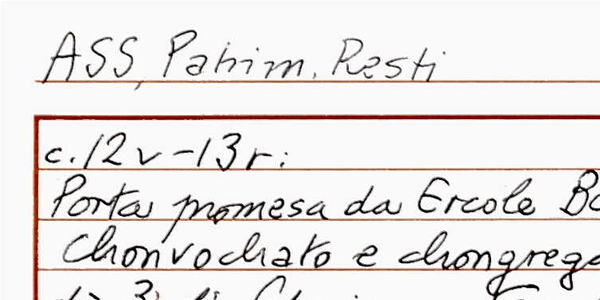 ASS, Patrim. Resti
c. 12v-13r:
Porta promesa da Ercole
Chonvochato e
di